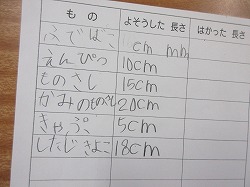 もの よそうした長さ はかった長さ
ふでばこ cm mm
えんぴつ 10cm
ものさし 15cm
かみのものさし 20cm
きゃっぷ 5cm
したじきよこ 18cm